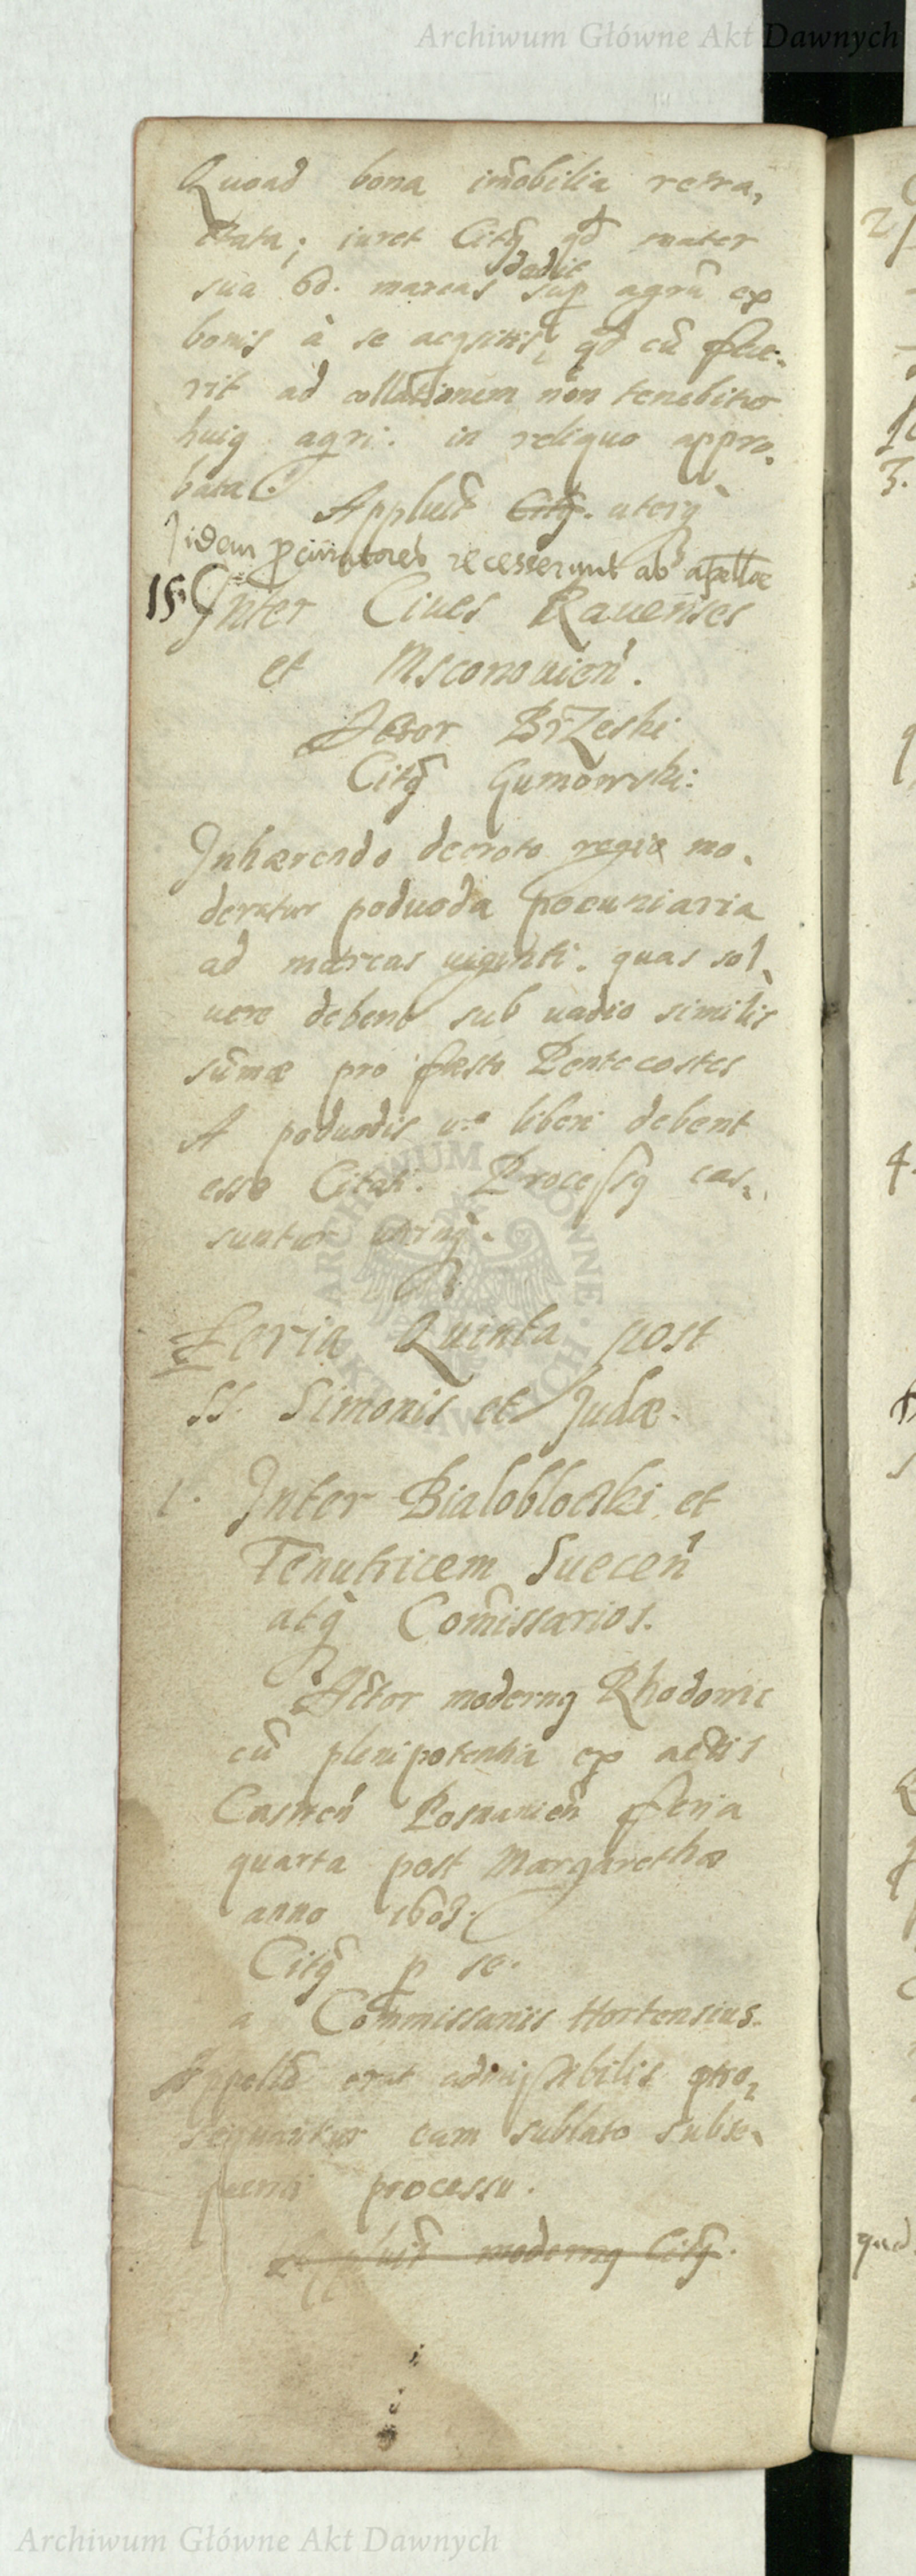 Archiwum Główne Akt Dawnych
Quoad bona im̃obilia retra,
ctata; iuret Citꝗ̃ qđ mater
dedit
sua 60. marcas sup agrũ ex
bonis à se acqsitis, qđ cũ fece-
rit ad collationem non tenebitur
huiꝗ agri: in reliquo appro.
bata.
Appluit̃ Citꝗ̃. uterqꝫ
Iidem ꝓcuratores recesserunt ab apellõe
15. Inter Ciues Rauenses
et Msconouien̄.
Actor Brzeski
Citꝗ̃ Gumowski:
Inhærendo decreto regio mo.
deratur poduoda pecuniaria
ad marcas uiginti. quas sol,
uere debent sub uadio similis
sum̃æ pro festo Pentecostes
A poduodis uero liberi debent
esse Citati. Processꝗ cas,
suntur utrinqꝫ.
Feria Quinta post
SS. Simonis et Judæ.
1. Inter Bialoblocki et
Tenutricem Suecen̄
atqꝫ Com̃issarios.
Actor modernꝗ Rhodowic
cũ plenipotentia ex actis
Castren̄ Posnanien̄ feria
quarta post Margarethæ
anno 1603.
Citꝗ̃ ꝑ se.
a Commissariis Hortensius.
Appellõ erat admissibilis
sequantur eam sublato subse,
quenti processu.
Appluit̃ modernꝗ Citꝗ̃.
2
3.
4.
quod
Archiwum Główne Akt Dawnych